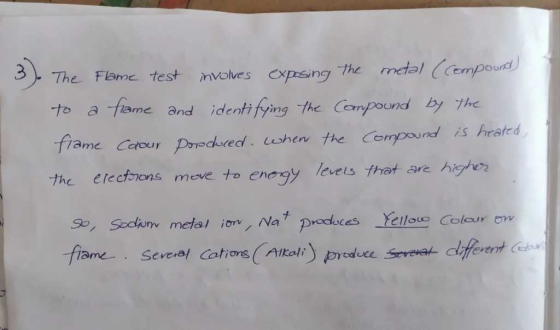 3). The Flame test involves exposing the metal (compound)
to a flame and identifying the compound by the
flame Colour Produced. when the Compound is heated,
the electrons move to energy levels that are higher
So, Sodium metal ion, Na+ produces Yellow Colour on
flame. Several Cations (Alkali) produce several different Colour